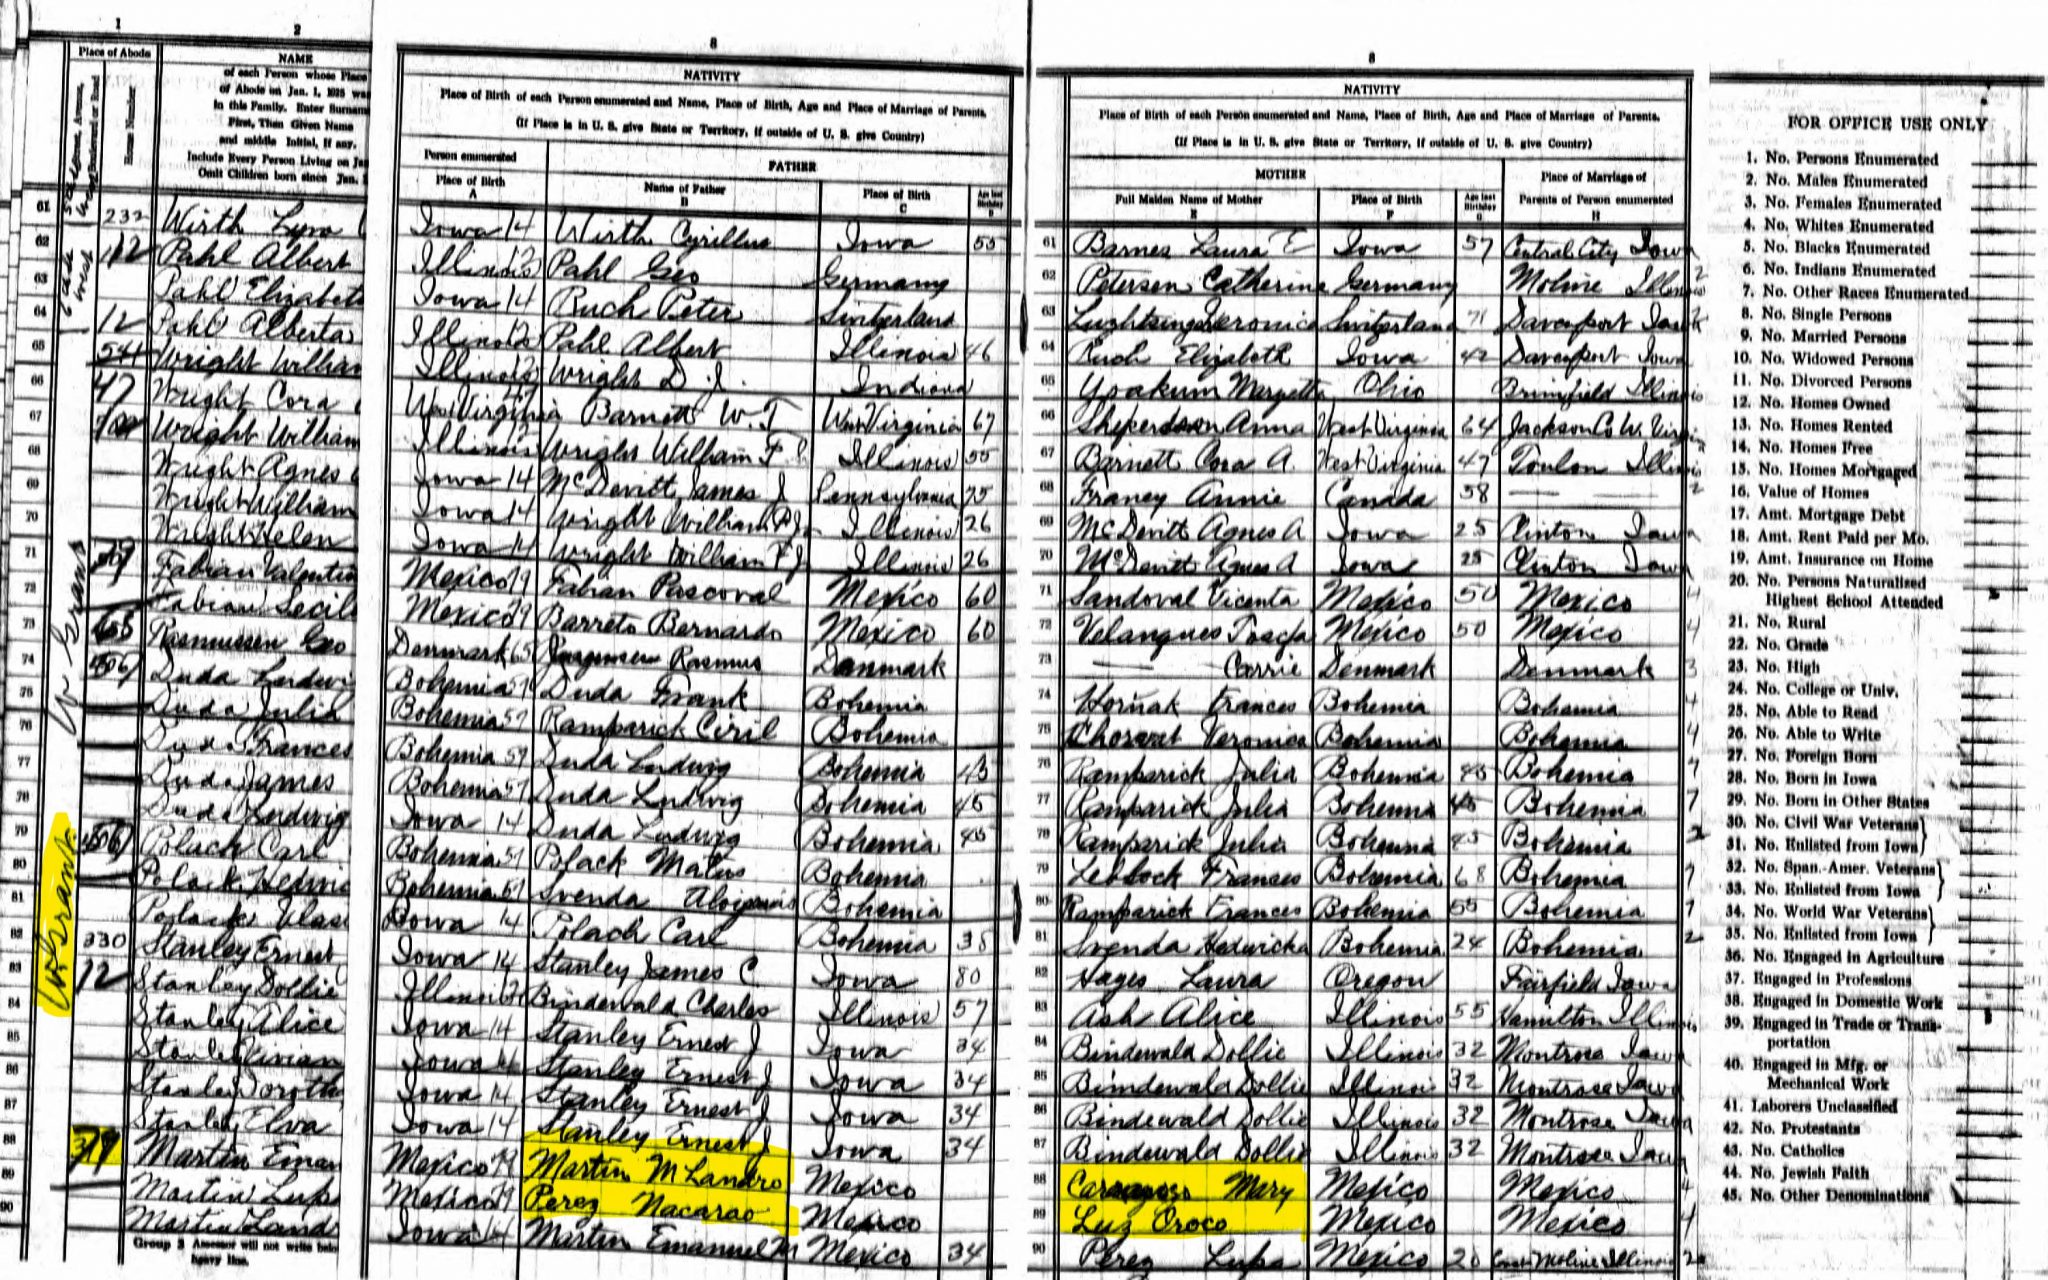 1
2
8
8
Place of Abode
NAME
of each Person whose Place
of Abode on Jan. 1, 1925 was
in this Family. Enter Surname
First, Then Given Name
and middle Initial, if any.
Include Every Person Living on Jan
Omit Children born since Jan.
House Number
NATIVITY
Place of Birth of each Person enumerated and Name, Place of Birth, Age and Place of Marriage of Parents.
(If Place is in U. S. give State or Territory, if outside of U. S. give Country)
Person enumerated
Place of Birth
A
FATHER
Name of Father
B
Place of Birth
C
Age last Birthday
D
NATIVITY
Place of Birth of each Person enumerated and Name, Place of Birth, Age and Place of Marriage of Parents.
(If Place is in U. S. give State or Territory, if outside of U. S. give Country)
MOTHER
Full Maiden Name of Mother
E
Place of Birth
F
Age last Birthday
G
Place of Marriage of
Parents of Person enumerated
H
61 232 Wirth Lyra Iowa 14 Wirth Cyrillus Iowa 55 61 Barnes Laura E Iowa 57 Central City Iowa
62 112 Pahl Albert Illinois Pahl Geo Germany 62 Petersen Catherine Germany Moline Illinois
63 Pahl Elizabeth Iowa 14 Ruch Peter 63 Veronica 71 Davenport Iowa
64 12 Pahl Alberta Illinois Pahl Albert Illinois 46 64 Ruch Elizabeth Iowa 42 Davenport Iowa
65 541 Wright William Illinois Wright D. J. Indiana 65 Yoakum Margetta Ohio Brimfield Illinois
66 47 Wright Cora West Virginia Barnett W. T West Virginia 67 66 Anna West Virginia 64 Jackson Co W. Virginia
67 Wright William Illinois Wright William F Illinois 55 67 Barnett Cora A. West Virginia 47 Toulon Illinois
68 Wright Agnes Iowa 14 McDevitt James J Pennsylvania 75 68 Franey Annie Canada 58
69 Wright William Iowa 14 Wright William F Jr Illinois 26 69 McDevitt Agnes A Iowa 25 Clinton Iowa
70 Wright Helen Iowa 14 Wright William F J Illinois 26 70 McDevitt Agnes A Iowa 25 Clinton Iowa
71 Fabian Valentin Mexico 79 Fabian Pascoval Mexico 60 71 Sandoval Vicenta Mexico 50 Mexico 4
72 Fabian Secil Mexico 79 Barreto Bernardo Mexico 60 72 Velangues Mexico 50 Mexico 4
73 Rasmussen Geo Denmark 65 Rasmus Danmark 73 Carrie Denmark Denmark 3
74 Duda Ludwig Bohemia Duda Frank Bohemia 74 Hornak Frances Bohemia Bohemia 4
75 Duda Julia Bohemia Ramparick Ciril Bohemia 75 Veronica Bohemia Bohemia 4
76 Duda Frances Bohemia Duda Ludwig Bohemia 45 76 Ramparick Julia Bohemia 45 Bohemia
77 Duda James Bohemia Duda Ludwig Bohemia 45 77 Ramparick Julia Bohemia 45 Bohemia
78 Duda Ludwig Iowa 14 Duda Ludwig Bohemia 45 78 Ramparick Julia Bohemia 45 Bohemia
79 Polach Carl Bohemia Polack Matus Bohemia 79 Frances Bohemia 68 Bohemia
80 Polack Hedwic Bohemia Svenda Bohemia 80 Ramparick Frances Bohemia 55 Bohemia
81 Iowa 14 Polach Carl Bohemia 38 81 Svenda Hedwicka Bohemia 24 Bohemia
82 330 Stanley Ernest Iowa 14 Stanley James C Iowa 80 82 Hages Laura Oregon Fairfield Iowa
83 12 Stanley Dollie Illinois Bindewald Charles Illinois 57 83 Ash Alice Illinois 55 Hamilton Illinois
84 Stanley Alice Iowa 14 Stanley Ernest J Iowa 34 84 Bindewald Dollie Illinois 32 Montrose Iowa
85 Stanley Vivian Iowa 14 Stanley Ernest J Iowa 34 85 Bindewald Dollie Illinois 32 Montrose Iowa
86 Stanley Dorothy Iowa 14 Stanley Ernest J Iowa 34 86 Bindewald Dollie Illinois 32 Montrose Iowa
87 Stanley Elva Iowa 14 Stanley Ernest J Iowa 34 87 Bindewald Dollie Illinois 32 Montrose Iowa
88 Martin Eman Mexico 79 Martin M Landro Mexico 88 Mary Mexico Mexico 4
89 Martin Lupa Mexico 79 Perez Nacarao Mexico 89 Luz Oroco Mexico Mexico 4
90 Martin Land Iowa 14 Martin Emanuel M Mexico 34 90 Perez Lupa Mexico 20 Moline Illinois
W Grant
W. Grant
Group 3 Assessor will not write below
heavy line.
FOR OFFICE USE ONLY
1. No. Persons Enumerated
2. No. Males Enumerated
3. No. Females Enumerated
4. No. Whites Enumerated
5. No. Blacks Enumerated
6. No. Indians Enumerated
7. No. Other Races Enumerated
8. No. Single Persons
9. No. Married Persons
10. No. Widowed Persons
11. No. Divorced Persons
12. No. Homes Owned
13. No. Homes Rented
14. No. Homes Free
15. No. Homes Mortgaged
16. Value of Homes
17. Amt. Mortgage Debt
18. Amt. Rent Paid per Mo.
19. Amt. Insurance on Home
20. No. Persons Naturalized
Highest School Attended
21. No. Rural
22. No. Grade
23. No. High
24. No. College or Univ.
25. No. Able to Read
26. No. Able to Write
27. No. Foreign Born
28. No. Born in Iowa
29. No. Born in Other States
30. No. Civil War Veterans
31. No. Enlisted from Iowa
32. No. Span.-Amer. Veterans
33. No. Enlisted from Iowa
34. No. World War Veterans
35. No. Enlisted from Iowa
36. No. Engaged in Agriculture
37. Engaged in Professions
38. Engaged in Domestic Work
39. Engaged in Trade or Trans-
portation
40. Engaged in Mfg. or
Mechanical Work
41. Laborers Unclassified
42. No. Protestants
43. No. Catholics
44. No. Jewish Faith
45. No. Other Denominations